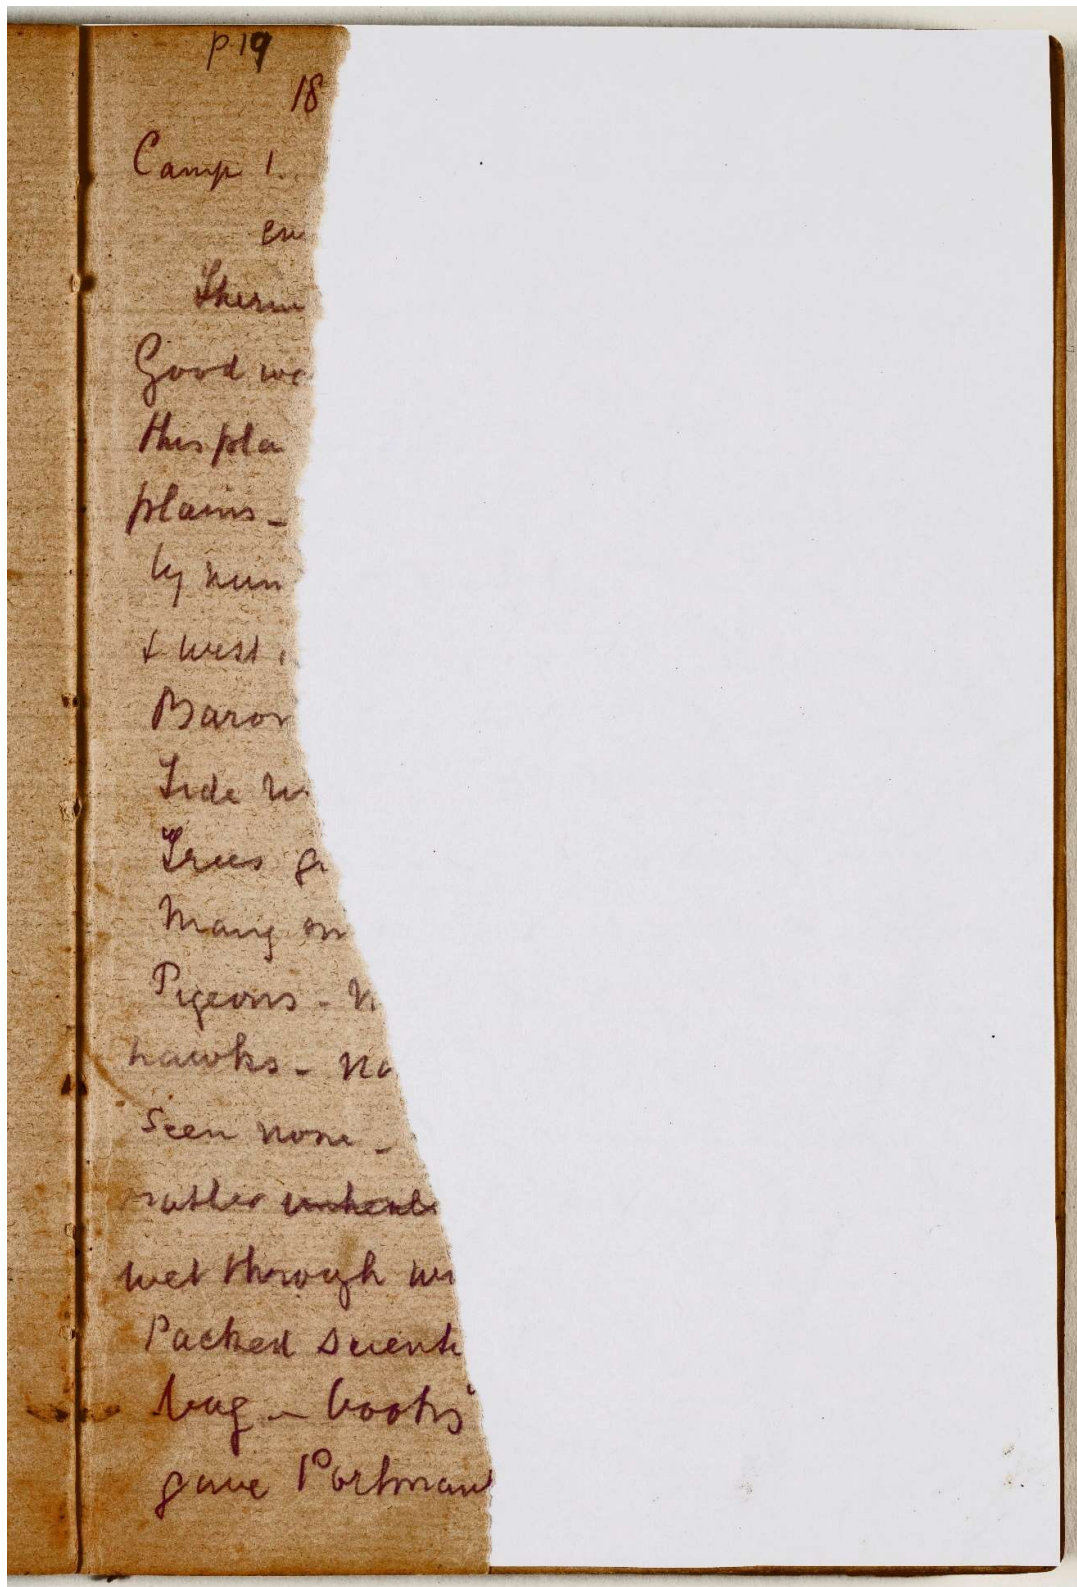 p 19
18
Camp 1.
en
Therm
Good we
this pla
plains -
by num
& west
Barom
Tide w
Trees gr
Many on
Pigeons -
hawks - no
Seen none -
rather
wet through
Packed scienti
bag - books
gave Portmant